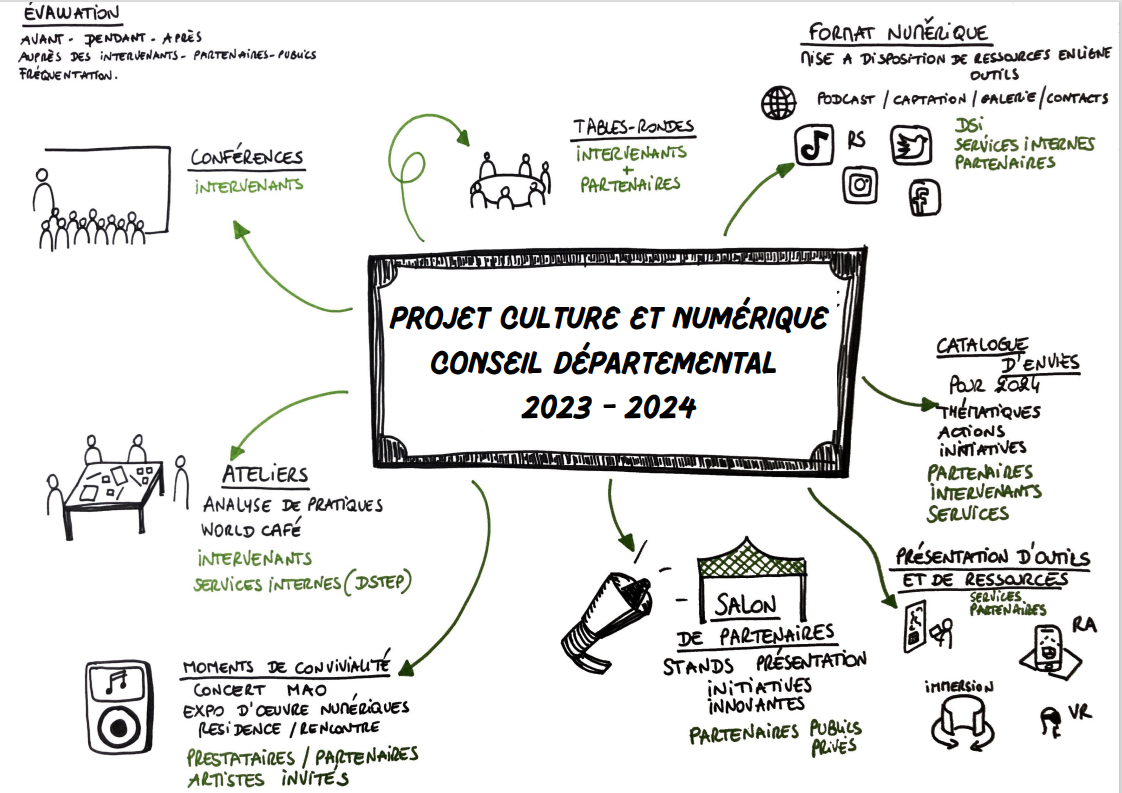 ÉVALUATION
AVANT - PENDANT - APRÈS
AUPRÈS DES INTERVENANTS - PARTENAIRES - PUBLICS
FRÉQUENTATION.
FORMAT NUMÉRIQUE
MISE A DISPOSITION DE RESSOURCES EN LIGNE
OUTILS
PODCAST / CAPTATION / GALERIE / CONTACTS
RS
DSI
SERVICES INTERNES
PARTENAIRES
TABLES-RONDES
INTERVENANTS
+
PARTENAIRES
CONFÉRENCES
INTERVENANTS
PROJET CULTURE ET NUMÉRIQUE
CONSEIL DÉPARTEMENTAL
2023 - 2024
CATALOGUE
D'ENVIES
POUR 2024
THÉMATIQUES
ACTIONS
INITIATIVES
PARTENAIRES
INTERVENANTS
SERVICES
ATELIERS
ANALYSE DE PRATIQUES
WORLD CAFÉ
INTERVENANTS
SERVICES INTERNES (DSTEP)
PRÉSENTATION D'OUTILS
ET DE RESSOURCES
SERVICES
PARTENAIRES
RA
IMMERSION
VR
SALON
DE PARTENAIRES
STANDS PRÉSENTATION
INITIATIVES
INNOVANTES
PARTENAIRES PUBLICS
PRIVÉS
MOMENTS DE CONVIVIALITÉ
CONCERT MAO
EXPO D'ŒUVRE NUMÉRIQUES
RESIDENCE / RENCONTRE
PRESTATAIRES / PARTENAIRES
ARTISTES INVITÉS